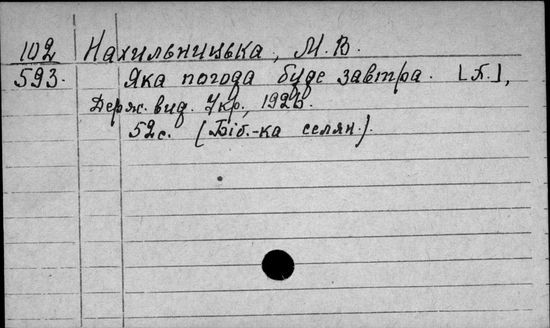 102 Нахильницька, М. В.
593. Яка погода буде завтра. [К.],
Держ. вид. Укр, 1926.
52с. [Біб.-ка селян.].